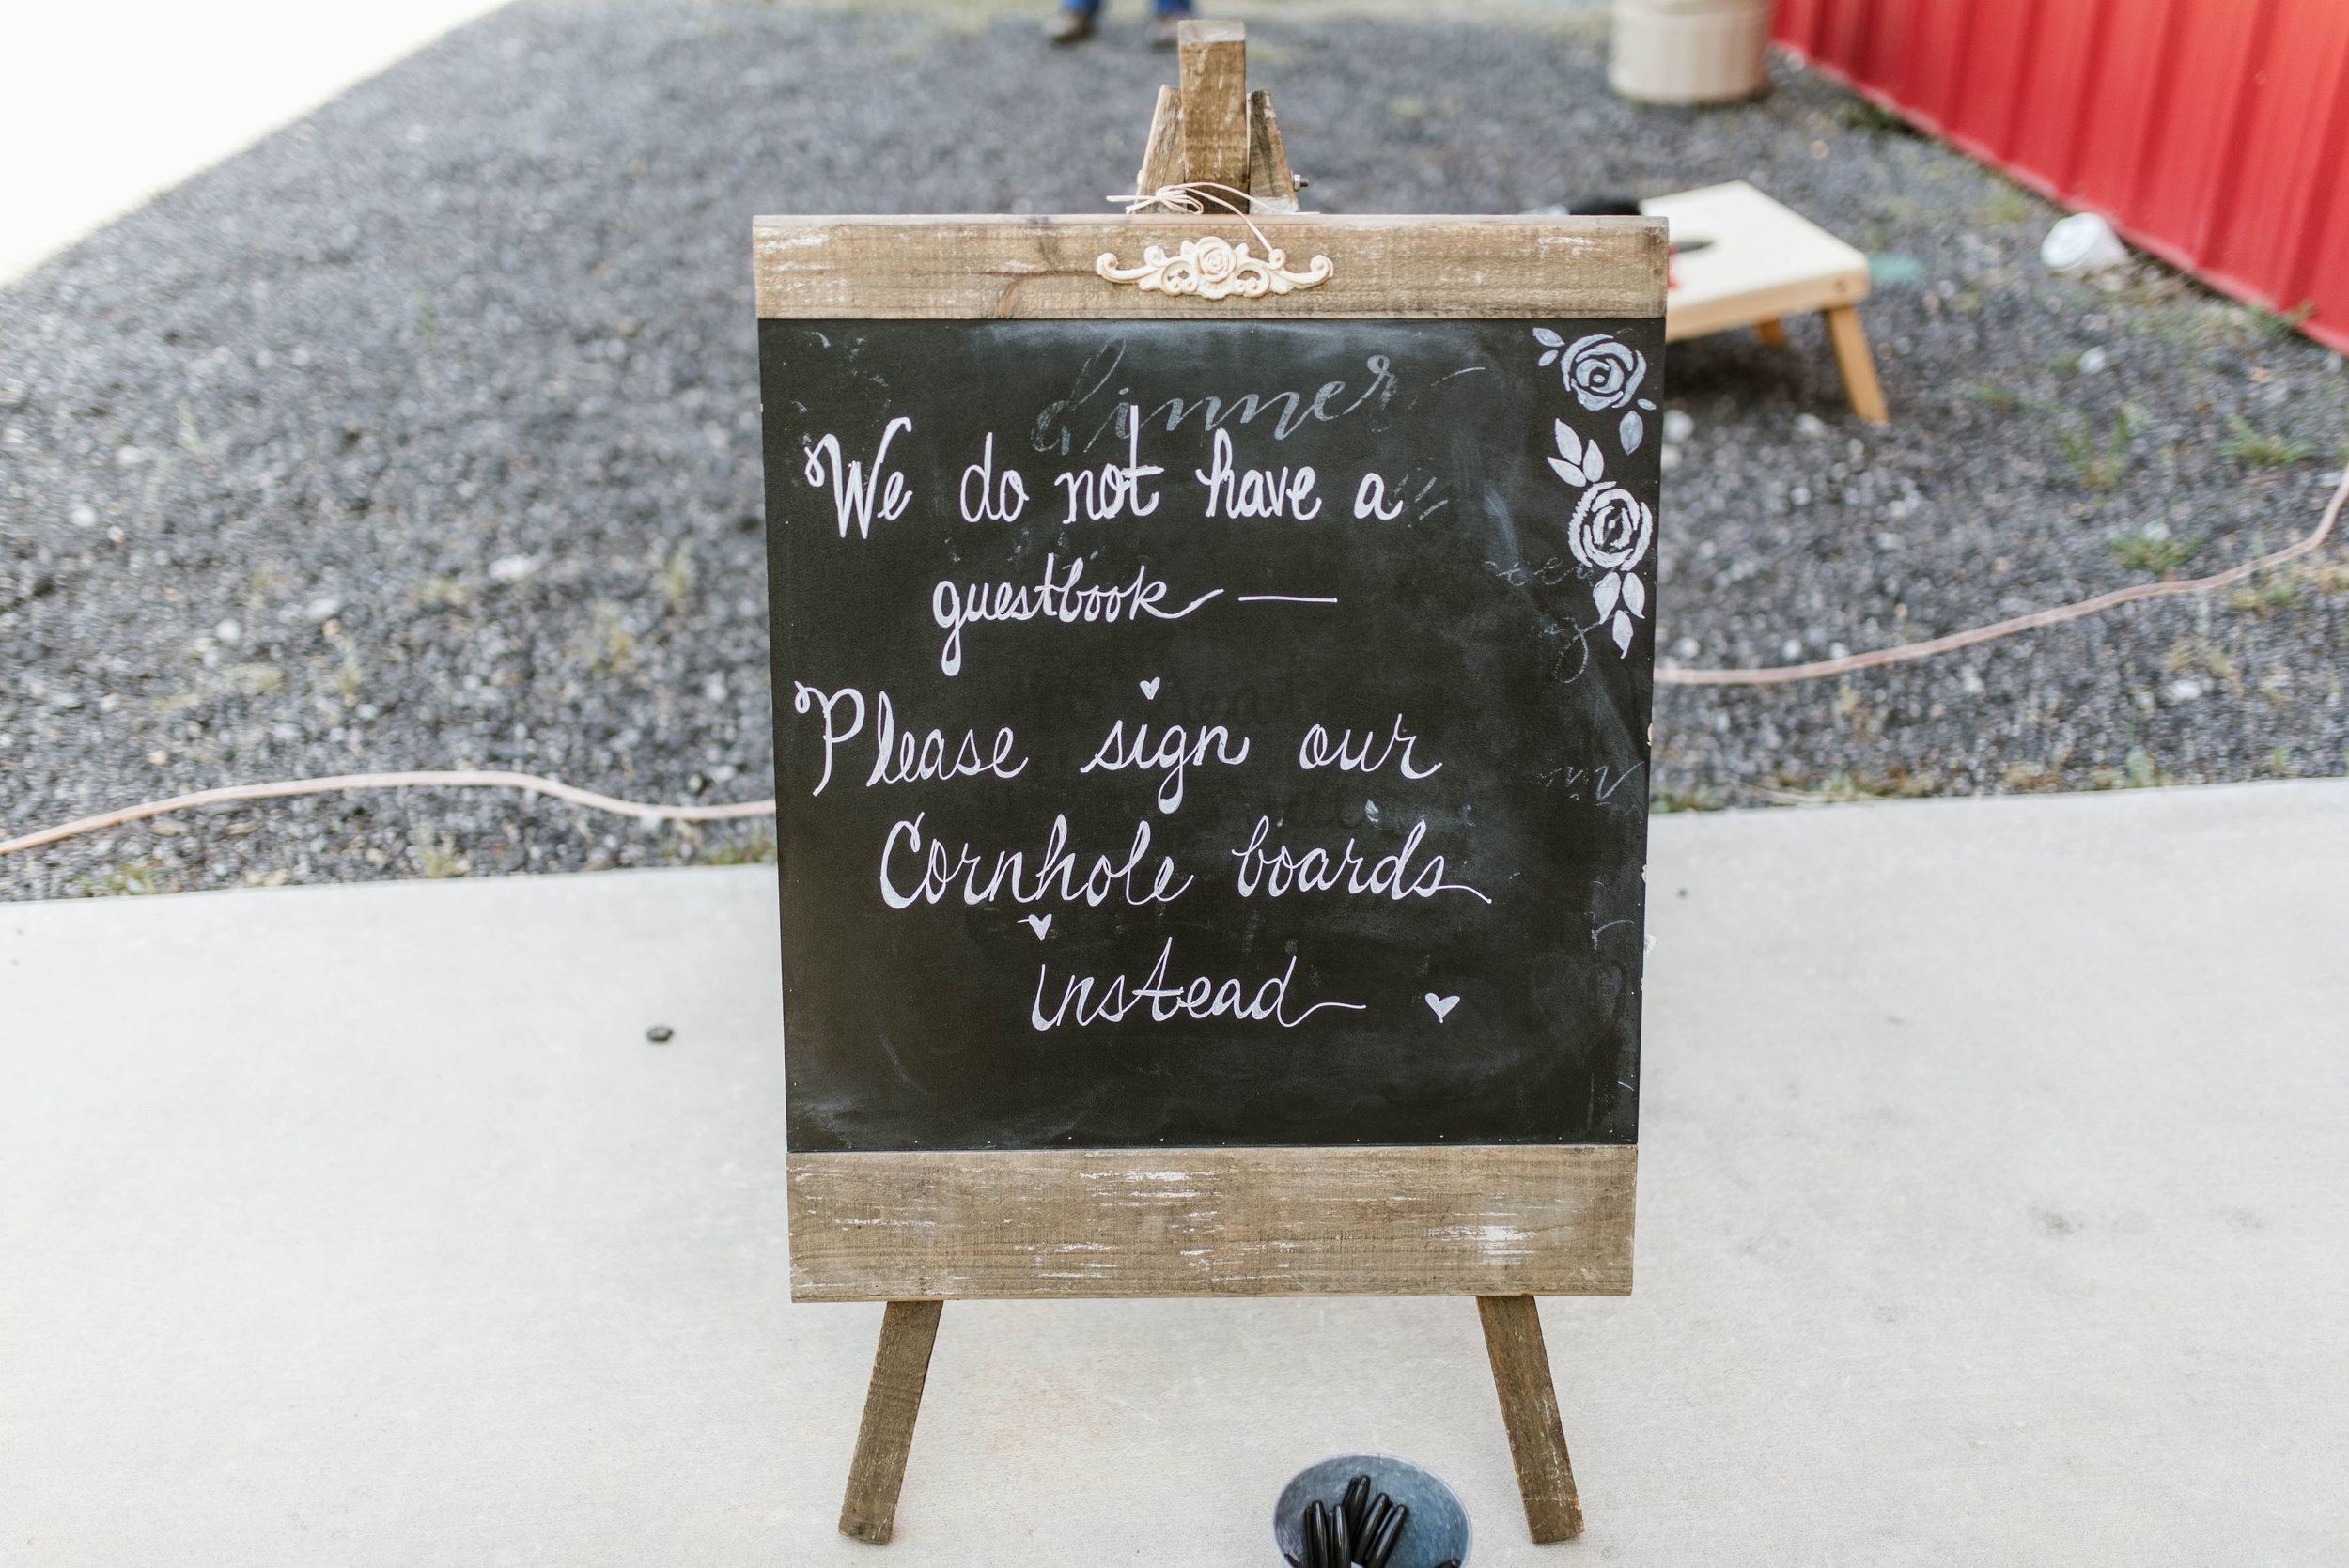 dinner
We do not have a
guestbook —
Please sign our
Cornhole boards
instead